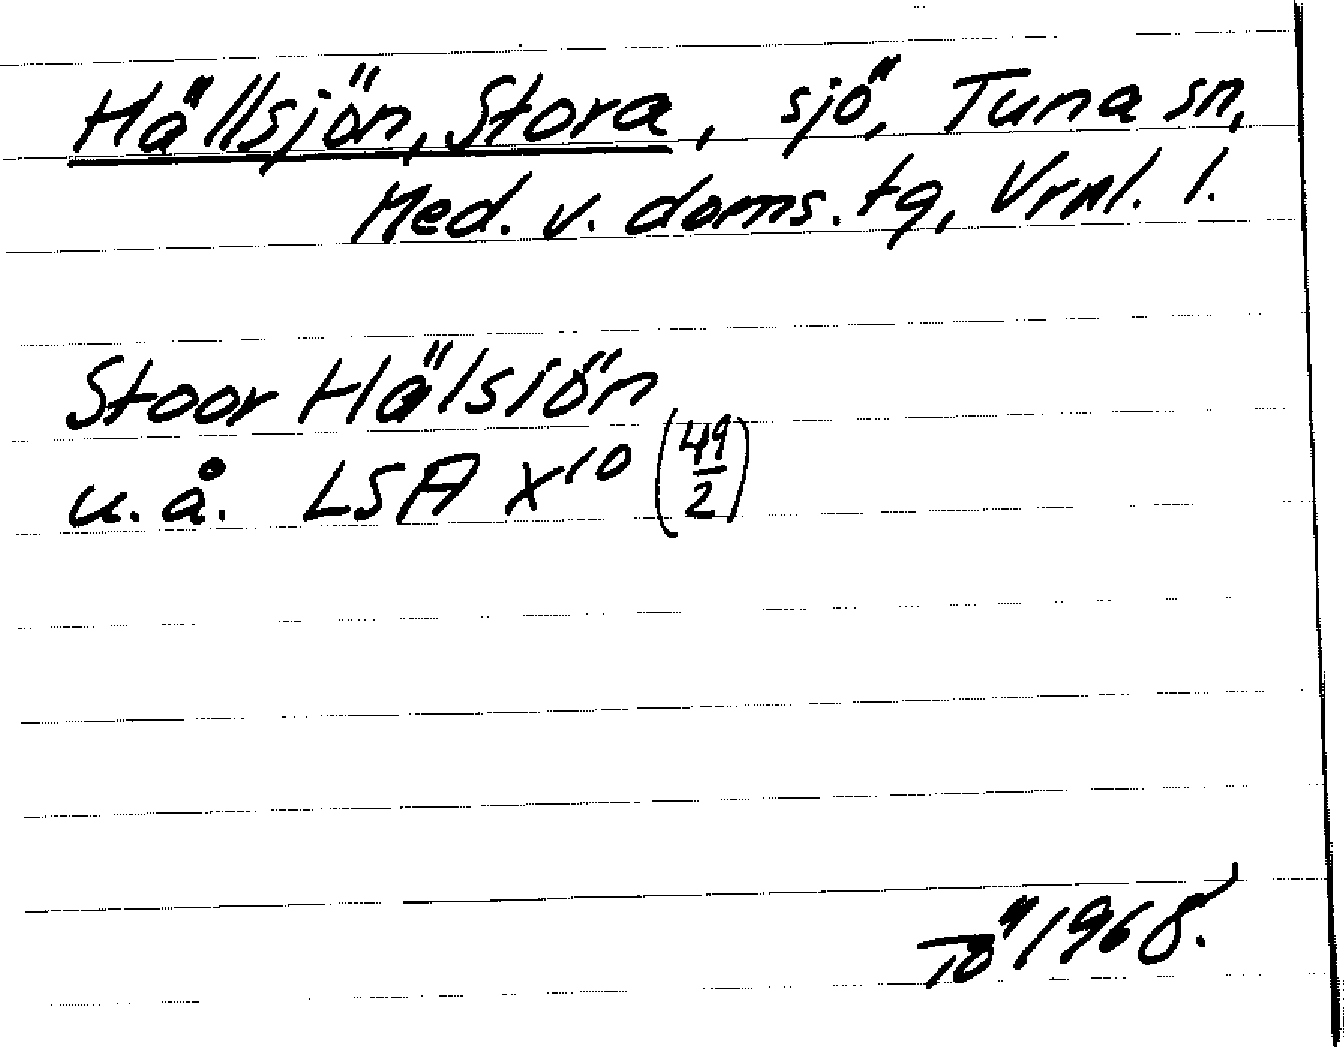 Hällsjön, Stora, sjö, Tuna sn,
Med. v. doms. tg, Vrnl. l.
Stoor Hälsiön
u.å. LSA X¹⁰ (49/2)
Tö 1968.